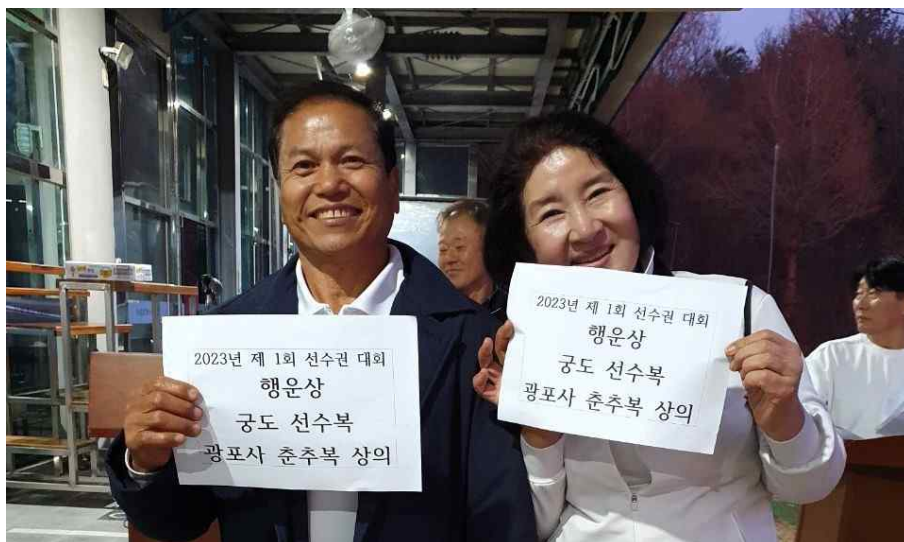 2023년 제 1회 선수권 대회
행운상
궁도 선수복
광포사 춘추복 상의
2023년 제 1회 선수권 대회
행운상
궁도 선수복
광포사 춘추복 상의